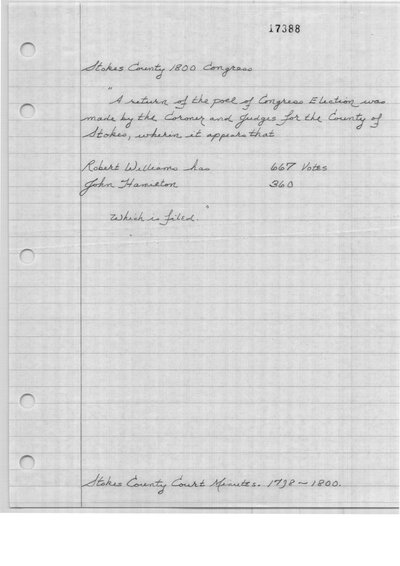 17388
Stokes County 1800 Congress
"A return of the poll of Congress Election was
made by the Coroner and Judges for the County of
Stokes, wherein it appears that
Robert Williams has 667 Votes
John Hamilton 360
Which is filed."
Stokes County Court Minutes. 1798 - 1800.